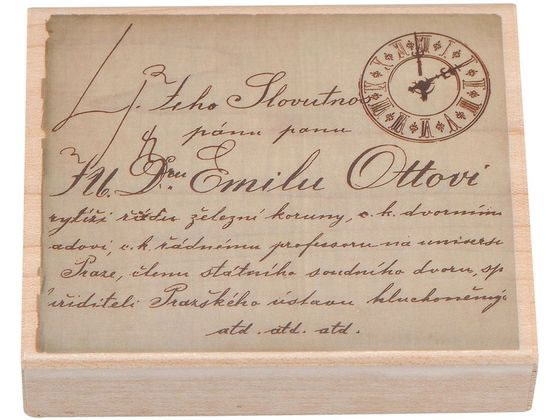 Jeho Slovutnos
pánu panu
JU. Dru. Emilu Ottovi
rytíři řádu železné koruny, c. k. dvorním
adovi, c. k. řádnému professoru na universi
Praze, členu státního soudního dvoru, sp
iřiditeli Pražského ústavu hluchoněmý
atd. atd. atd.